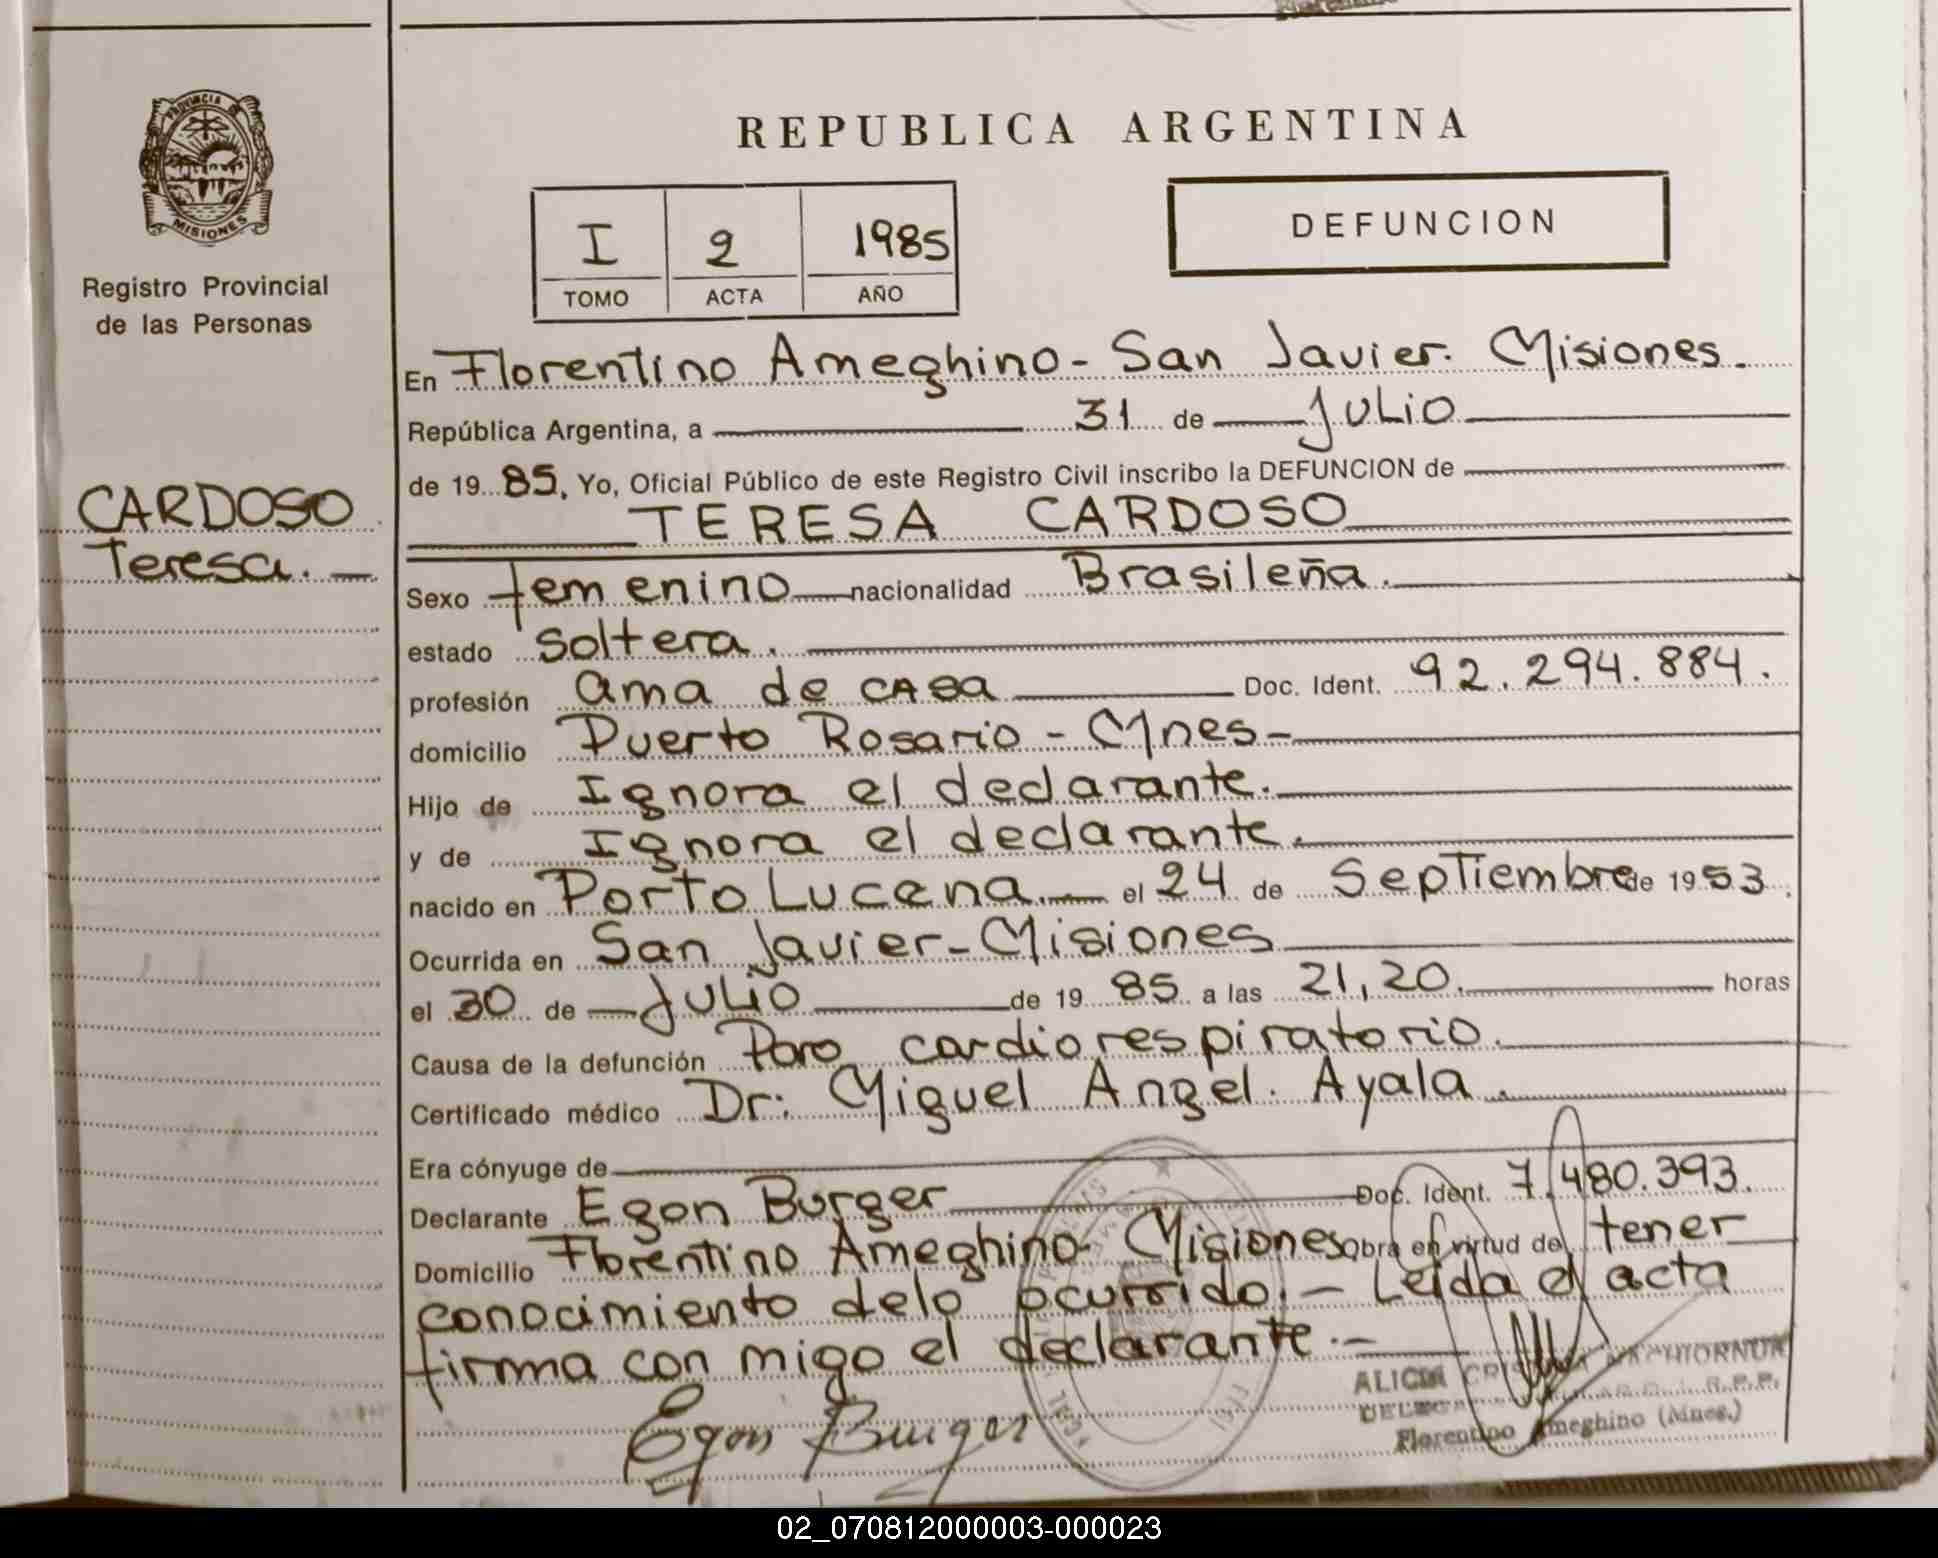 PROVINCIA DE
MISIONES
Registro Provincial
de las Personas
CARDOSO
Teresa. —
REPUBLICA ARGENTINA
I 2 1985
TOMO ACTA AÑO
DEFUNCION
En Florentino Ameghino - San Javier. Misiones.
República Argentina, a 31 de Julio
de 19 85, Yo, Oficial Público de este Registro Civil inscribo la DEFUNCION de
TERESA CARDOSO
Sexo femenino nacionalidad Brasileña.
estado soltera.
profesión ama de casa Doc. Ident. 92.294.884.
domicilio Puerto Rosario - Mnes -
Hijo de Ignora el declarante.
y de Ignora el declarante.
nacido en Porto Lucena. el 24 de Septiembre de 19 53.
Ocurrida en San Javier - Misiones
el 30 de Julio de 19 85 a las 21,20. horas
Causa de la defunción Paro cardiorespiratorio.
Certificado médico Dr: Miguel Angel. Ayala.
Era cónyuge de
Declarante Egon Burger Doc. Ident. 7.480.393.
Domicilio Florentino Ameghino - Misiones obra en virtud de tener
conocimiento delo ocurrido. — Leída el acta
firma con migo el declarante. —
Egon Burger
ALICIA
Florentino Ameghino (Mnes.)
02_070812000003-000023